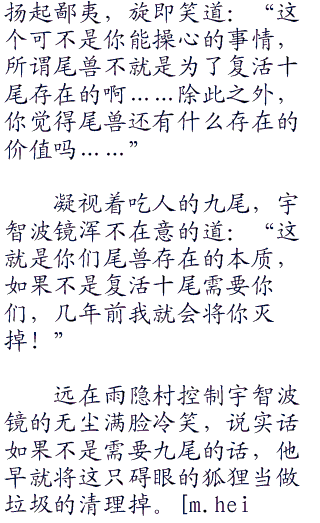 扬起鄙夷，旋即笑道：“这
个可不是你能操心的事情，
所谓尾兽不就是为了复活十
尾存在的啊……除此之外，
你觉得尾兽还有什么存在的
价值吗……”
凝视着吃人的九尾，宇
智波镜浑不在意的道：“这
就是你们尾兽存在的本质，
如果不是复活十尾需要你
们，几年前我就会将你灭
掉！”
远在雨隐村控制宇智波
镜的无尘满脸冷笑，说实话
如果不是需要九尾的话，他
早就将这只碍眼的狐狸当做
垃圾的清理掉。[m.hei